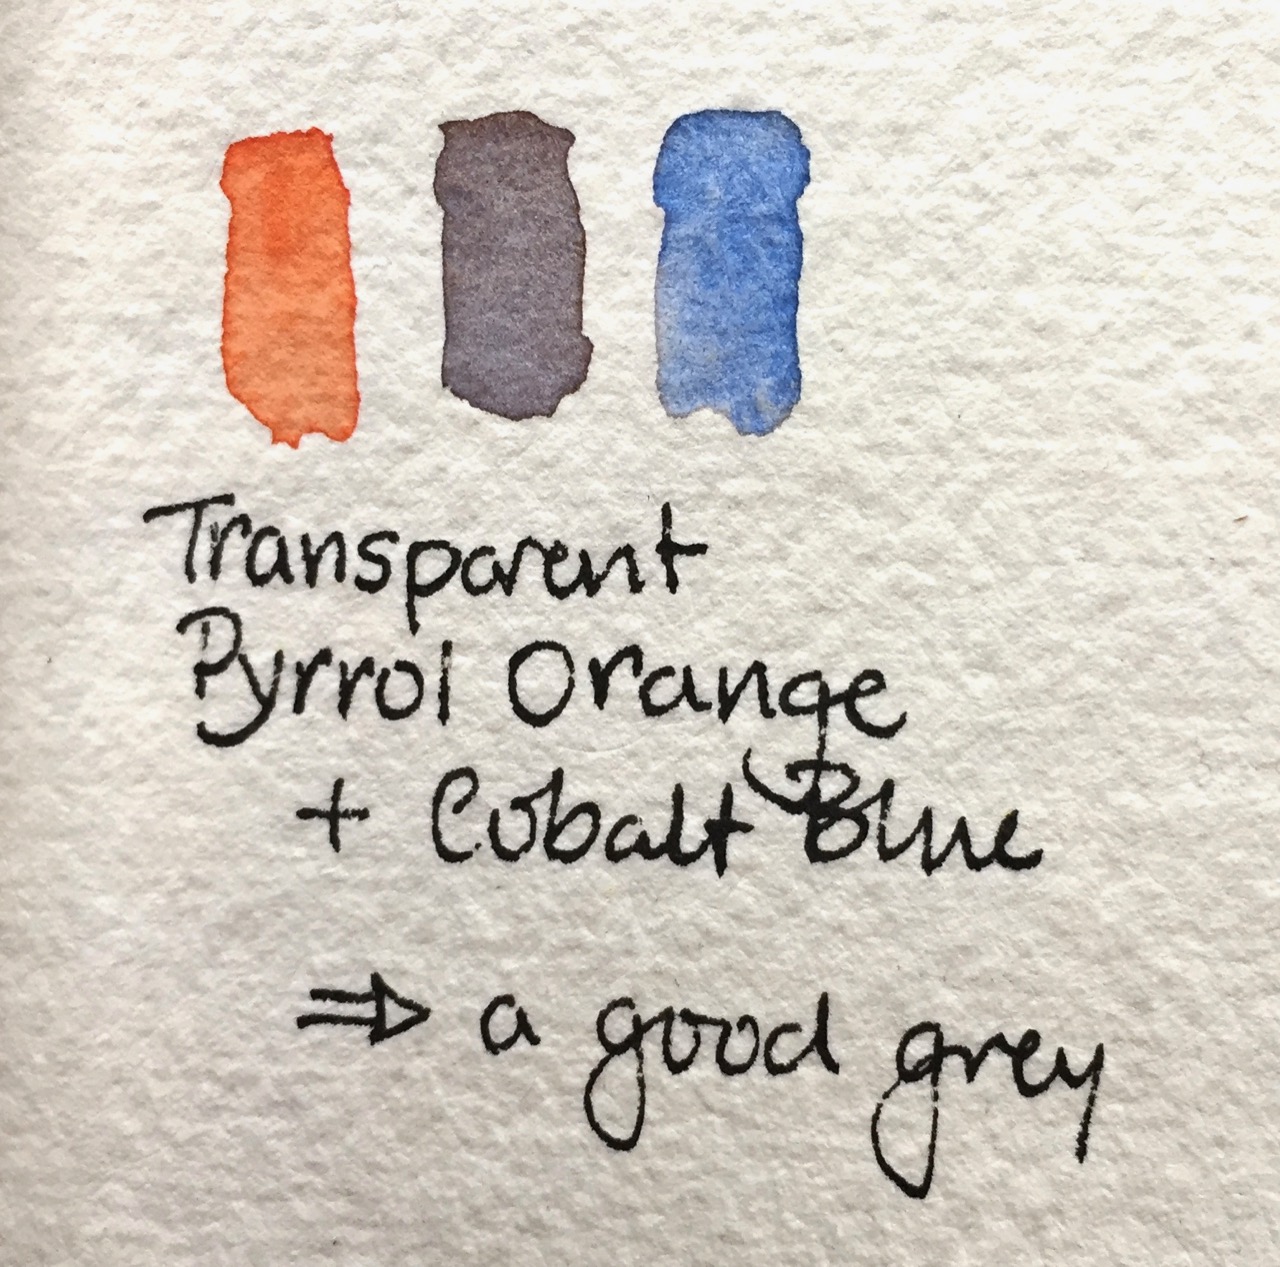 Transparent
Pyrrol Orange
+ Cobalt Blue
⇒ a good grey